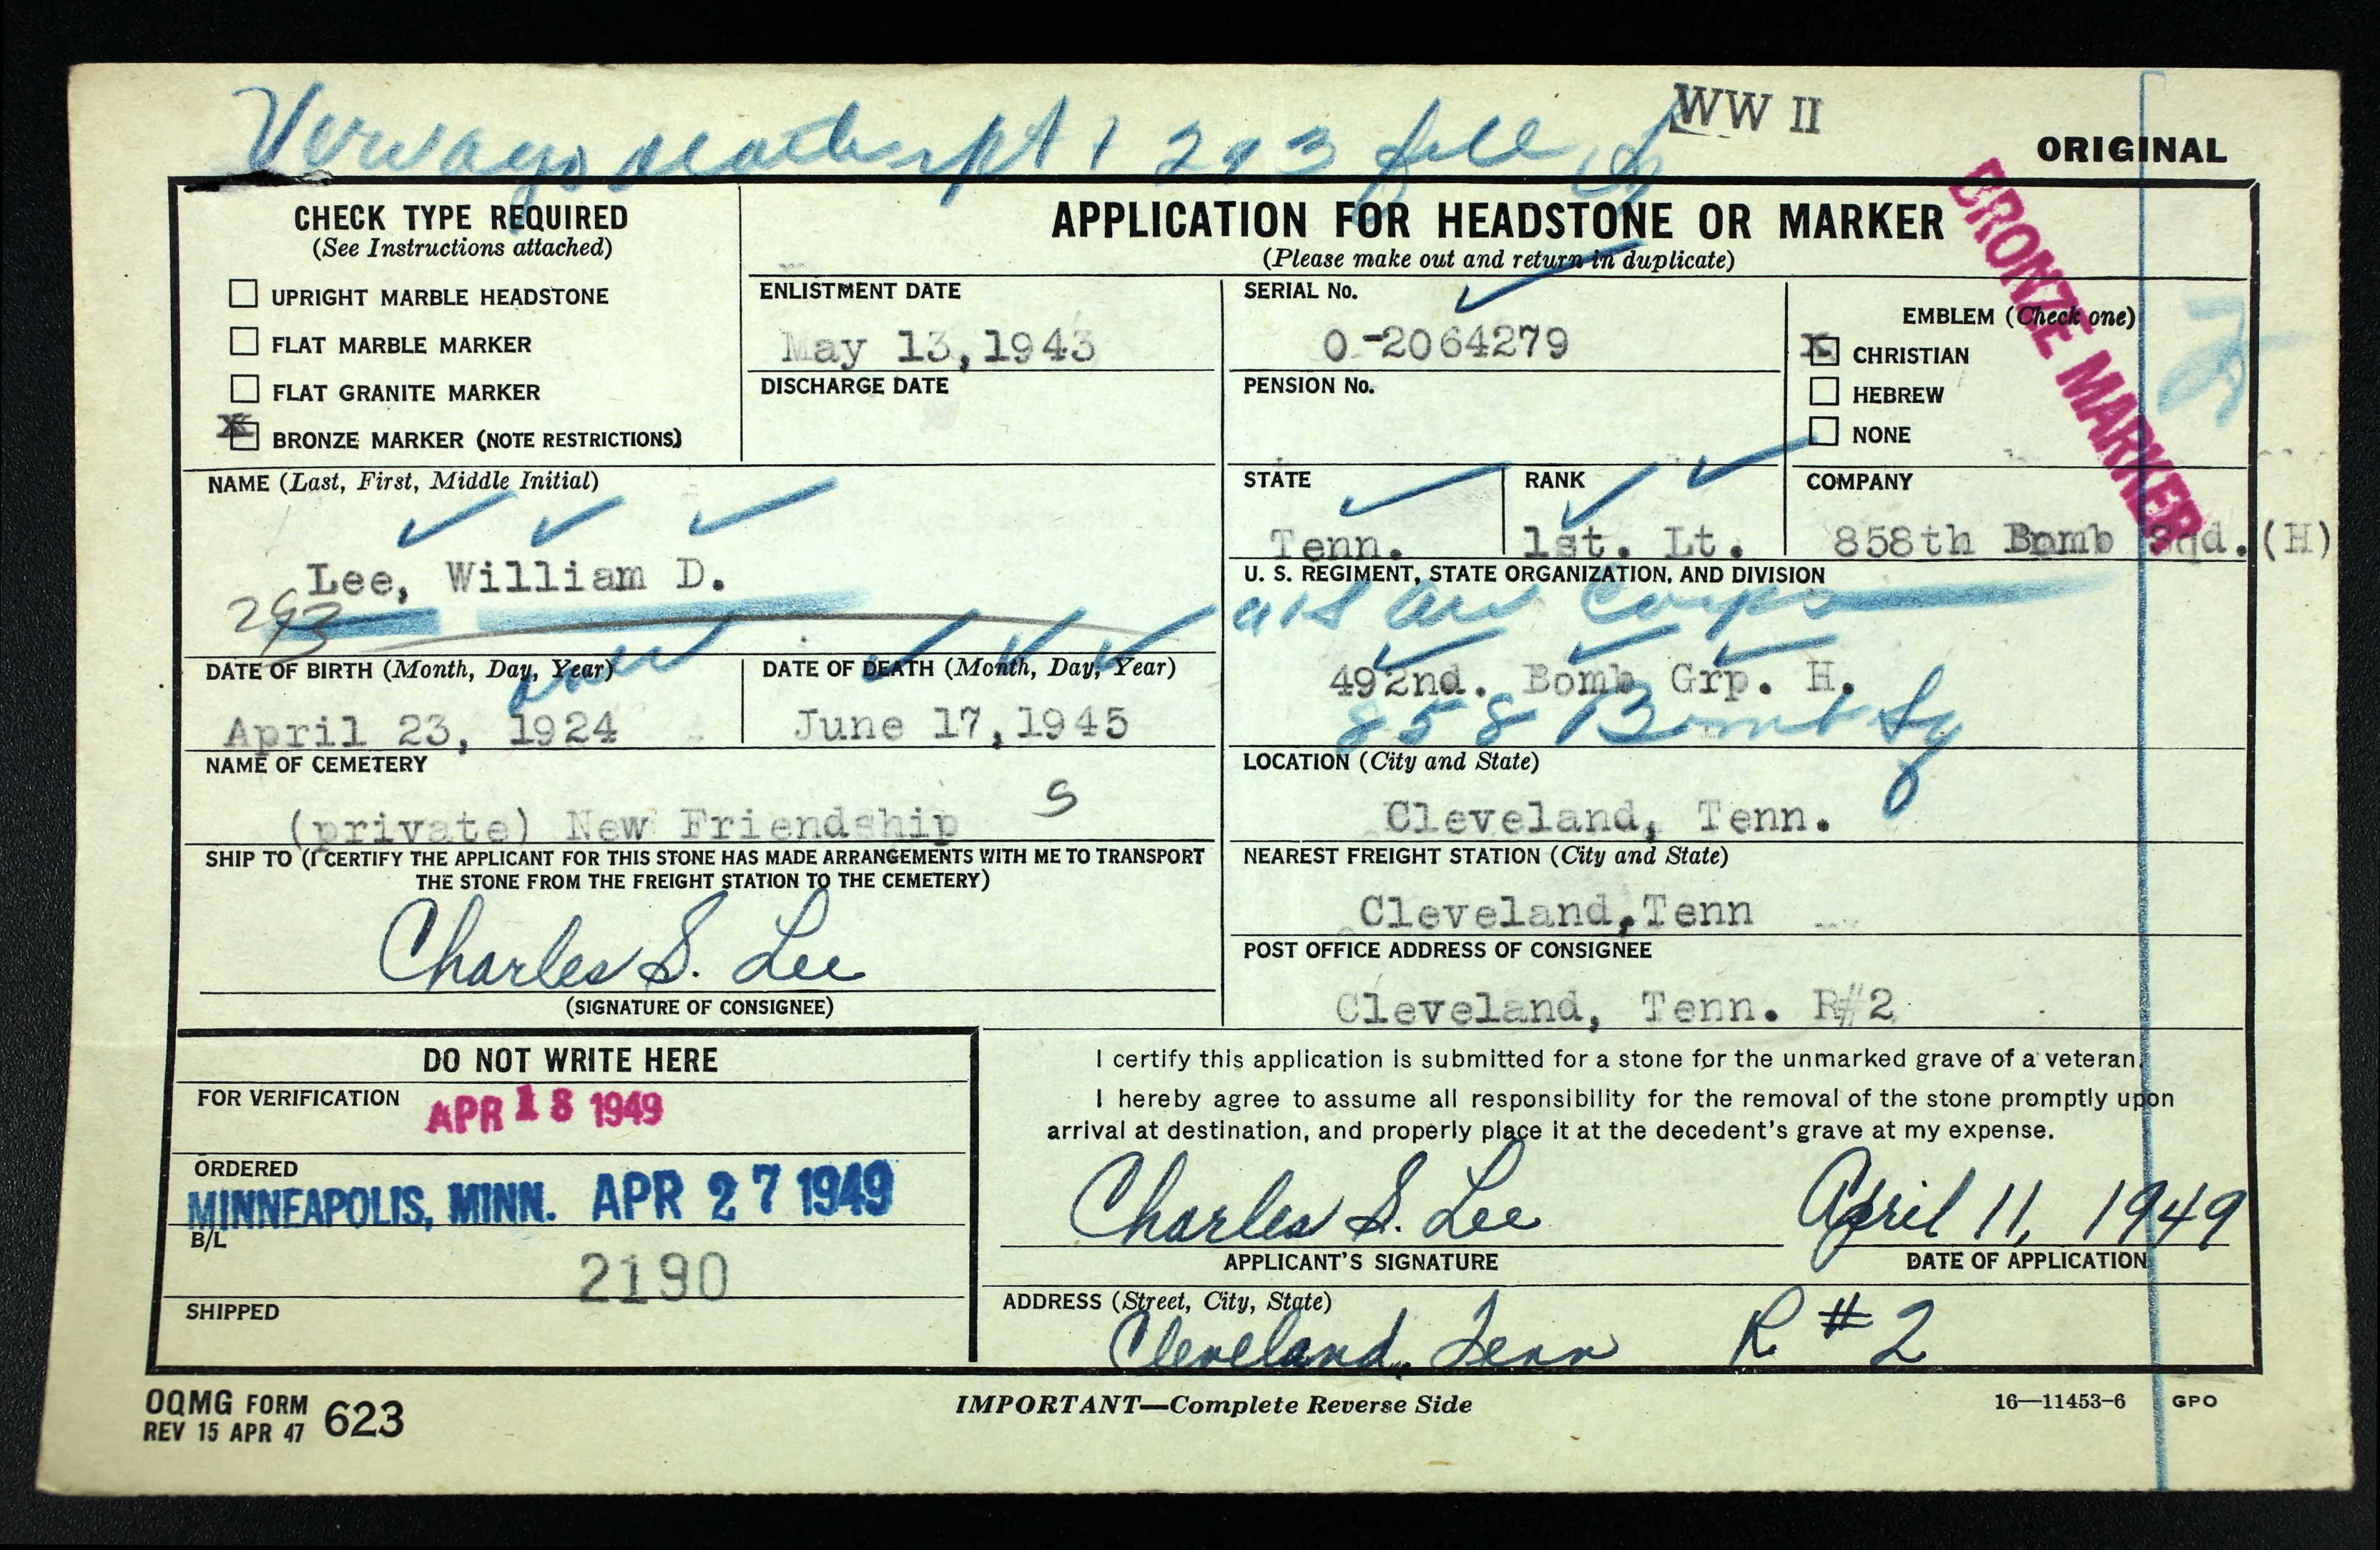 WW II
ORIGINAL
BRONZE MARKER
CHECK TYPE REQUIRED
(See Instructions attached)
UPRIGHT MARBLE HEADSTONE
FLAT MARBLE MARKER
FLAT GRANITE MARKER
X BRONZE MARKER (NOTE RESTRICTIONS)
APPLICATION FOR HEADSTONE OR MARKER
(Please make out and return in duplicate)
ENLISTMENT DATE
May 13, 1943
DISCHARGE DATE
SERIAL No.
O-2064279
PENSION No.
EMBLEM (Check one)
X CHRISTIAN
HEBREW
NONE
NAME (Last, First, Middle Initial)
Lee, William D.
293
STATE
Tenn.
RANK
1st. Lt.
COMPANY
858th Bomb Sqd. (H)
U. S. REGIMENT, STATE ORGANIZATION, AND DIVISION
Air Corps
492nd. Bomb Grp. H.
858 Bomb Sq
DATE OF BIRTH (Month, Day, Year)
April 23, 1924
DATE OF DEATH (Month, Day, Year)
June 17, 1945
NAME OF CEMETERY
(private) New Friendship S
LOCATION (City and State)
Cleveland, Tenn.
SHIP TO (I CERTIFY THE APPLICANT FOR THIS STONE HAS MADE ARRANGEMENTS WITH ME TO TRANSPORT
THE STONE FROM THE FREIGHT STATION TO THE CEMETERY)
Charles S. Lee
(SIGNATURE OF CONSIGNEE)
NEAREST FREIGHT STATION (City and State)
Cleveland, Tenn
POST OFFICE ADDRESS OF CONSIGNEE
Cleveland, Tenn. R#2
DO NOT WRITE HERE
FOR VERIFICATION
APR 18 1949
ORDERED
MINNEAPOLIS, MINN. APR 27 1949
B/L
2190
SHIPPED
I certify this application is submitted for a stone for the unmarked grave of a veteran.
I hereby agree to assume all responsibility for the removal of the stone promptly upon
arrival at destination, and properly place it at the decedent's grave at my expense.
Charles S. Lee April 11, 1949
APPLICANT'S SIGNATURE DATE OF APPLICATION
ADDRESS (Street, City, State)
Cleveland, Tenn R #2
OQMG FORM 623
REV 15 APR 47
IMPORTANT—Complete Reverse Side
16—11453-6 GPO